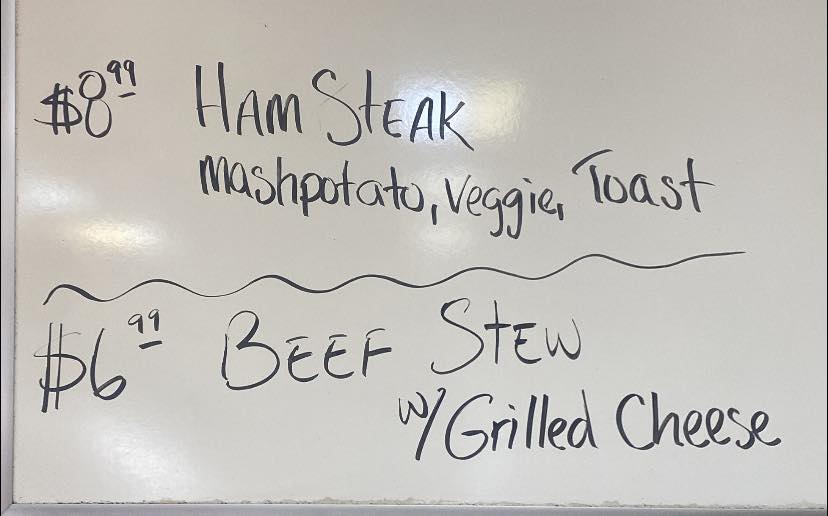 $8.99 HAM STEAK
Mashpotato, Veggie, Toast
$6.99 BEEF STEW
w/ Grilled Cheese